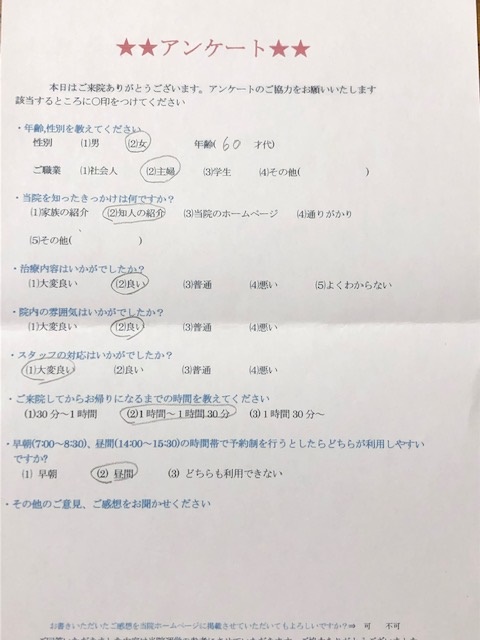 ★★アンケート★★
本日はご来院ありがとうございます。アンケートのご協力をお願いいたします
該当するところに○印をつけてください
・年齢,性別を教えてください
性別 (1)男 (2)女 年齢( 60 才代)
ご職業 (1)社会人 (2)主婦 (3)学生 (4)その他( )
・当院を知ったきっかけは何ですか?
(1)家族の紹介 (2)知人の紹介 (3)当院のホームページ (4)通りがかり
(5)その他( )
・治療内容はいかがでしたか?
(1)大変良い (2)良い (3)普通 (4)悪い (5)よくわからない
・院内の雰囲気はいかがでしたか?
(1)大変良い (2)良い (3)普通 (4)悪い
・スタッフの対応はいかがでしたか?
(1)大変良い (2)良い (3)普通 (4)悪い
・ご来院してからお帰りになるまでの時間を教えてください
(1)30分〜1時間 (2)1時間〜1時間30分 (3)1時間30分〜
・早朝(7:00〜8:30)、昼間(14:00〜15:30)の時間帯で予約制を行うとしたらどちらが利用しやすい
ですか?
(1) 早朝 (2) 昼間 (3) どちらも利用できない
・その他のご意見、ご感想をお聞かせください
お書きいただいたご感想を当院ホームページに掲載させていただいてもよろしいですか?⇒ 可 不可